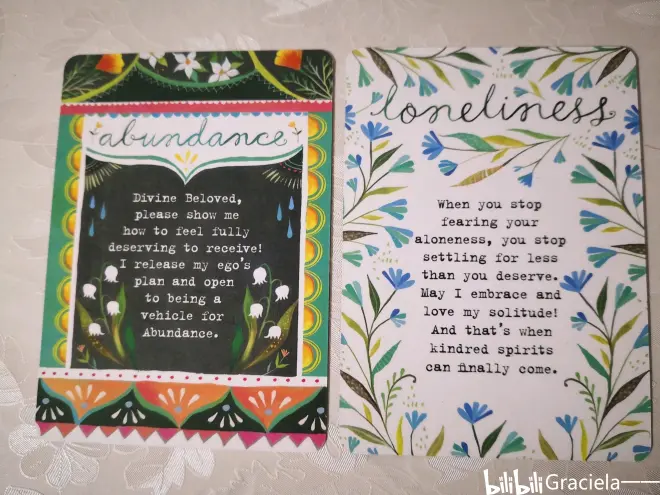 abundance
Divine Beloved,
please show me
how to feel fully
deserving to receive!
I release my ego's
plan and open
to being a
vehicle for
Abundance.
loneliness
When you stop
fearing your
aloneness, you stop
settling for less
than you deserve.
May I embrace and
love my solitude!
And that's when
kindred spirits
can finally come.
bilibili Graciela——